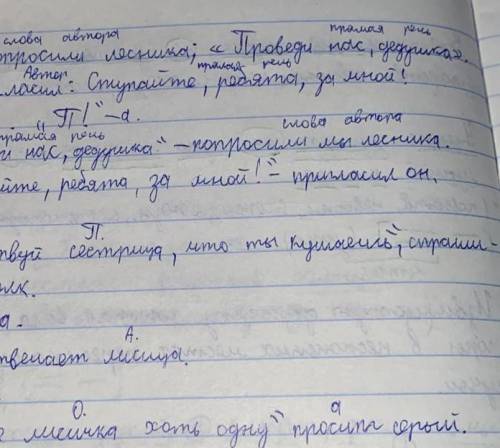 слова автора прямая речь
просили лесника; «Проведи нас, дедушка».
Автор прямая речь
ласил: Ступайте, ребята, за мной!
„П!" – а.
прямая речь слова автора
и нас, дедушка" – попросили мы лесника.
йте, ребята, за мной!" – пригласил он.
П.
твуй сестрица, что ты кушаешь", спраши-
лк.
а.
А.
твечает лисица.
О. а
лисичка хоть одну" просит серый.